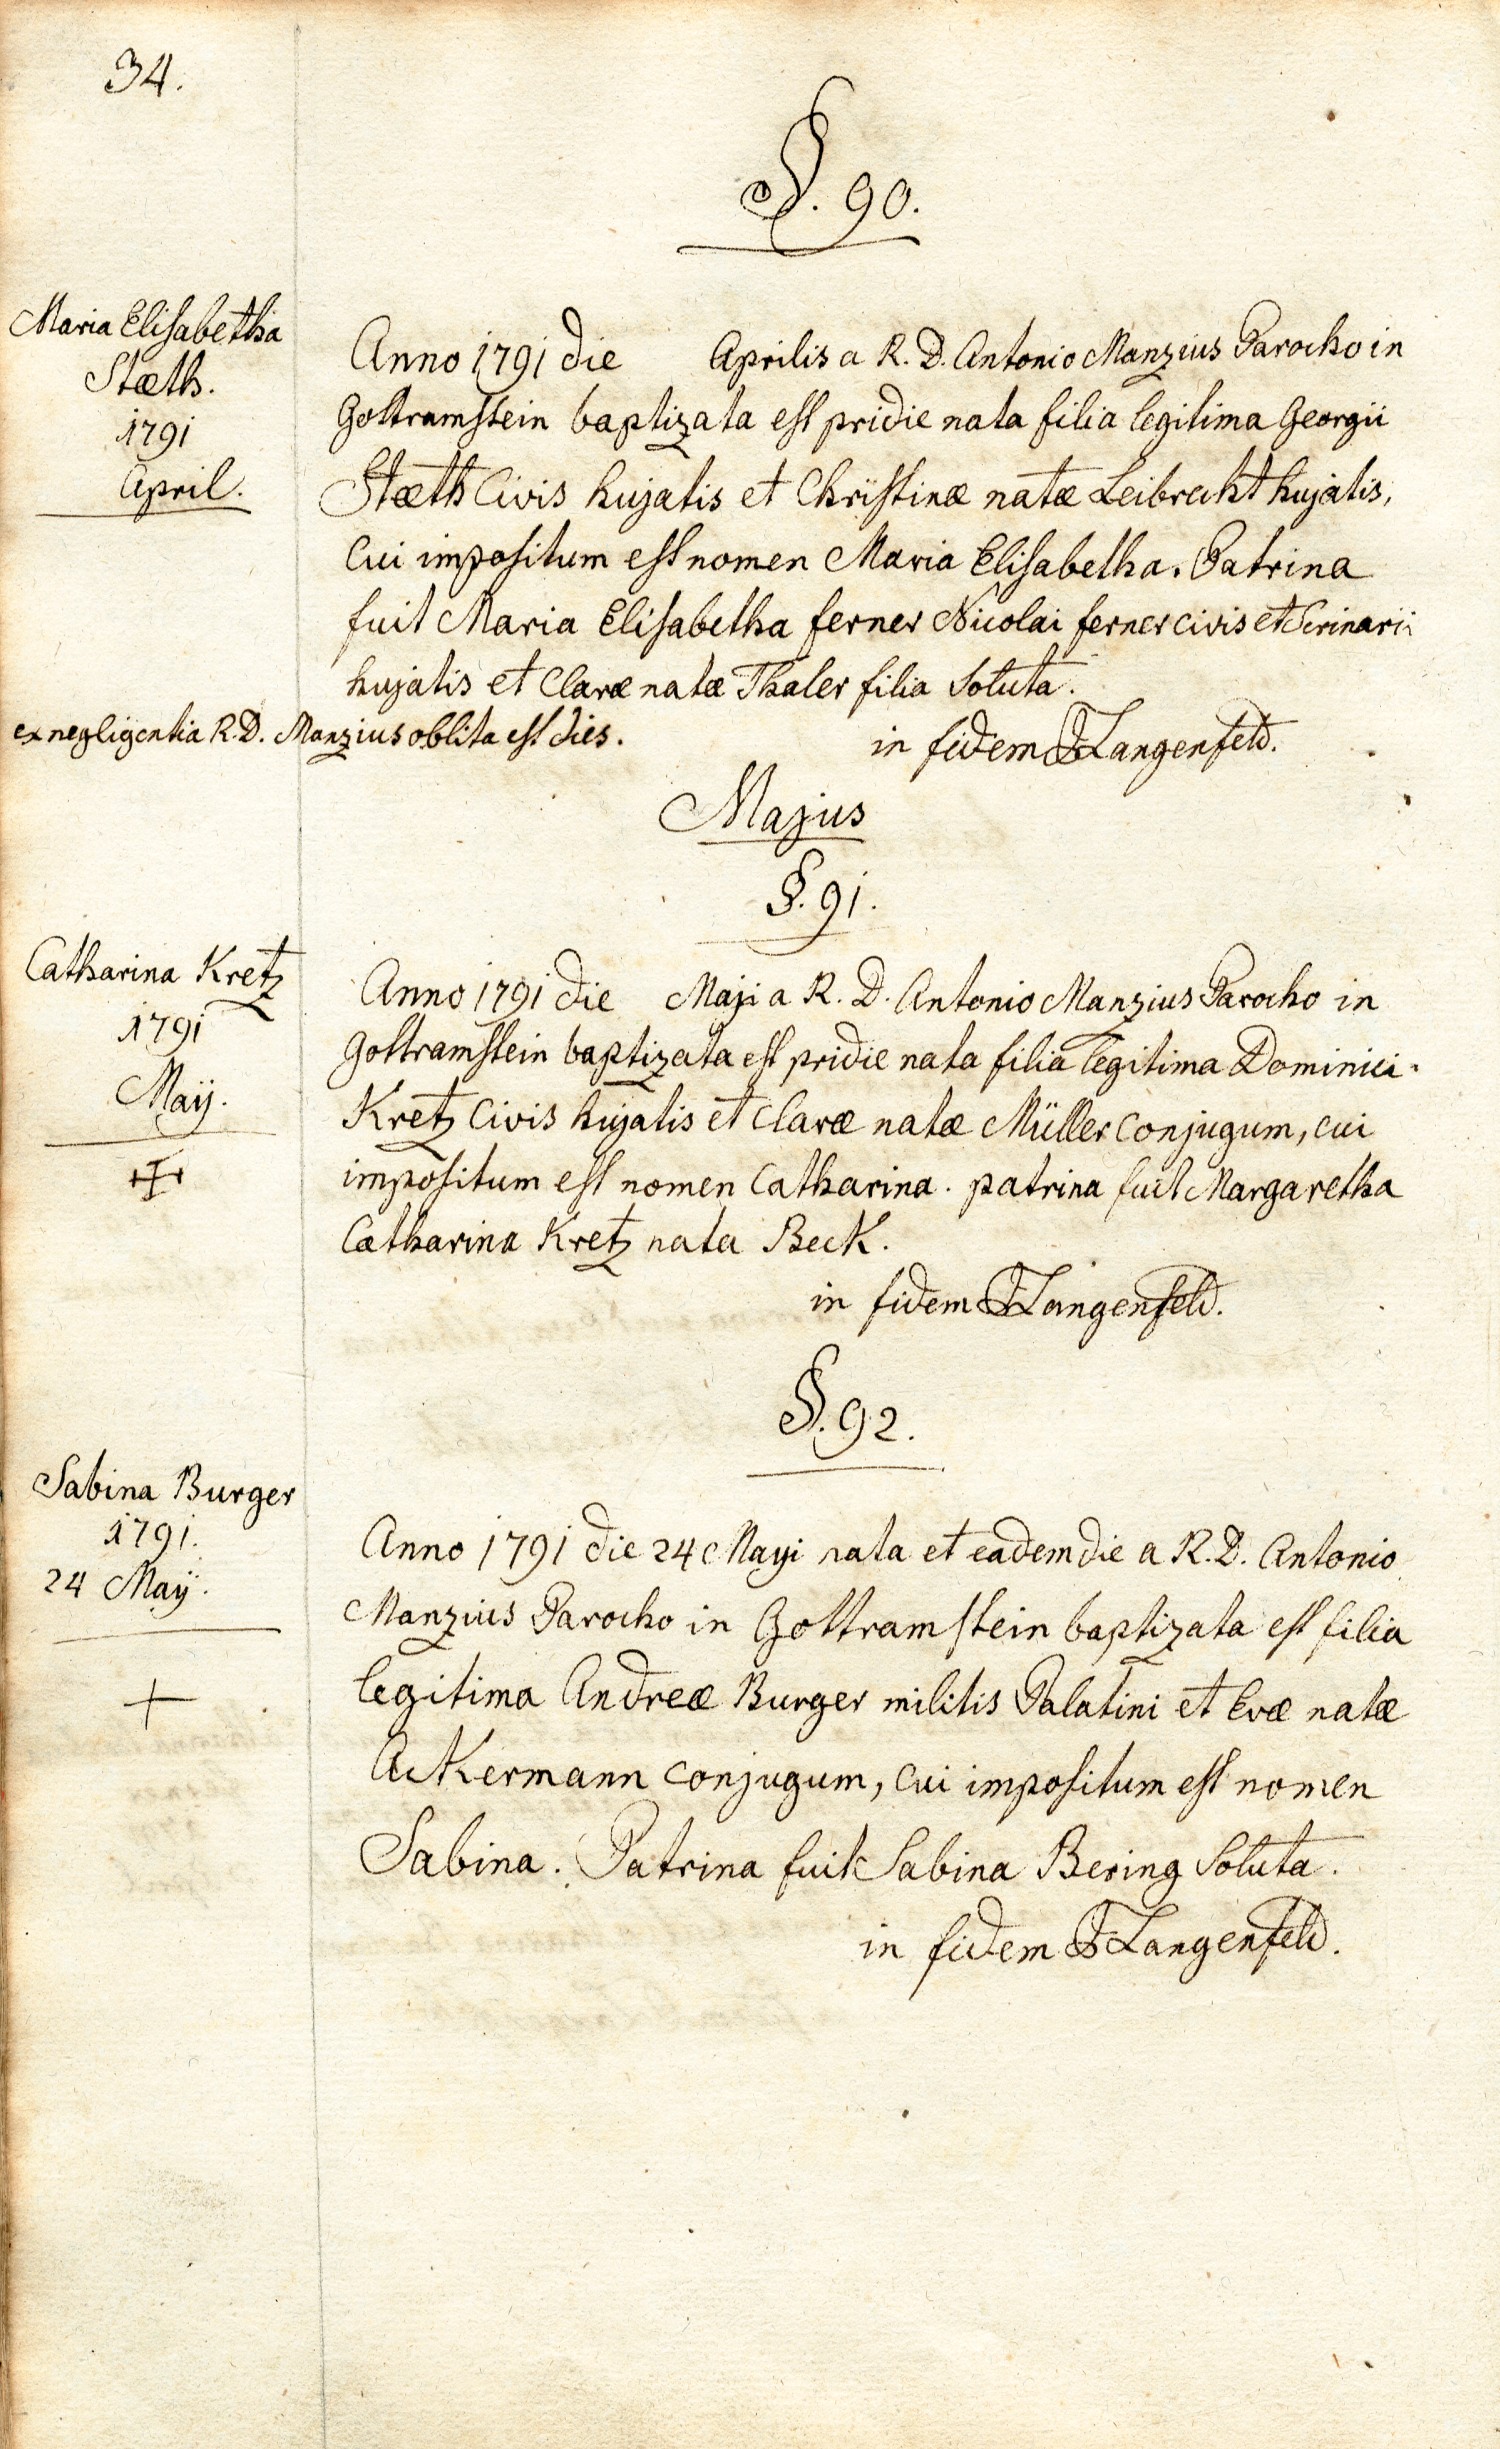 34.
§. 90.
Maria Elisabetha
Stæth.
1791
April.
Anno 1791 die Aprilis a R. D. Antonio Manzius Parocho in
Gottramstein baptizata est pridie nata filia legitima Georgii
Stæth Civis hujatis et Christinæ natæ Leibrecht hujatis,
Cui impositum est nomen Maria Elisabetha. Patrina
fuit Maria Elisabetha ferner Nicolai ferner civis et Scrinarii
hujatis et Claræ natæ Thaler filia Soluta.
ex negligentia R. D. Manzius oblita est dies.
in fidem Langenfeld.
Majus
§. 91.
Catharina Kretz
1791
Maÿ.
Anno 1791 die Maji a R. D. Antonio Manzius Parocho in
Gottramstein baptizata est pridie nata filia legitima Dominici
Kretz Civis hujatis et Claræ natæ Müller conjugum, cui
impositum est nomen Catharina. patrina fuit Margaretha
Catharina Kretz nata Beck.
in fidem Langenfeld.
§. 92.
Sabina Burger
1791.
24 Maÿ.
Anno 1791 die 24 Mayi nata et eadem die a R. D. Antonio
Manzius Parocho in Gottramstein baptizata est filia
legitima Andreæ Burger militis Palatini et Evæ natæ
Ackermann conjugum, cui impositum est nomen
Sabina. Patrina fuit Sabina Bering Soluta.
in fidem Langenfeld.